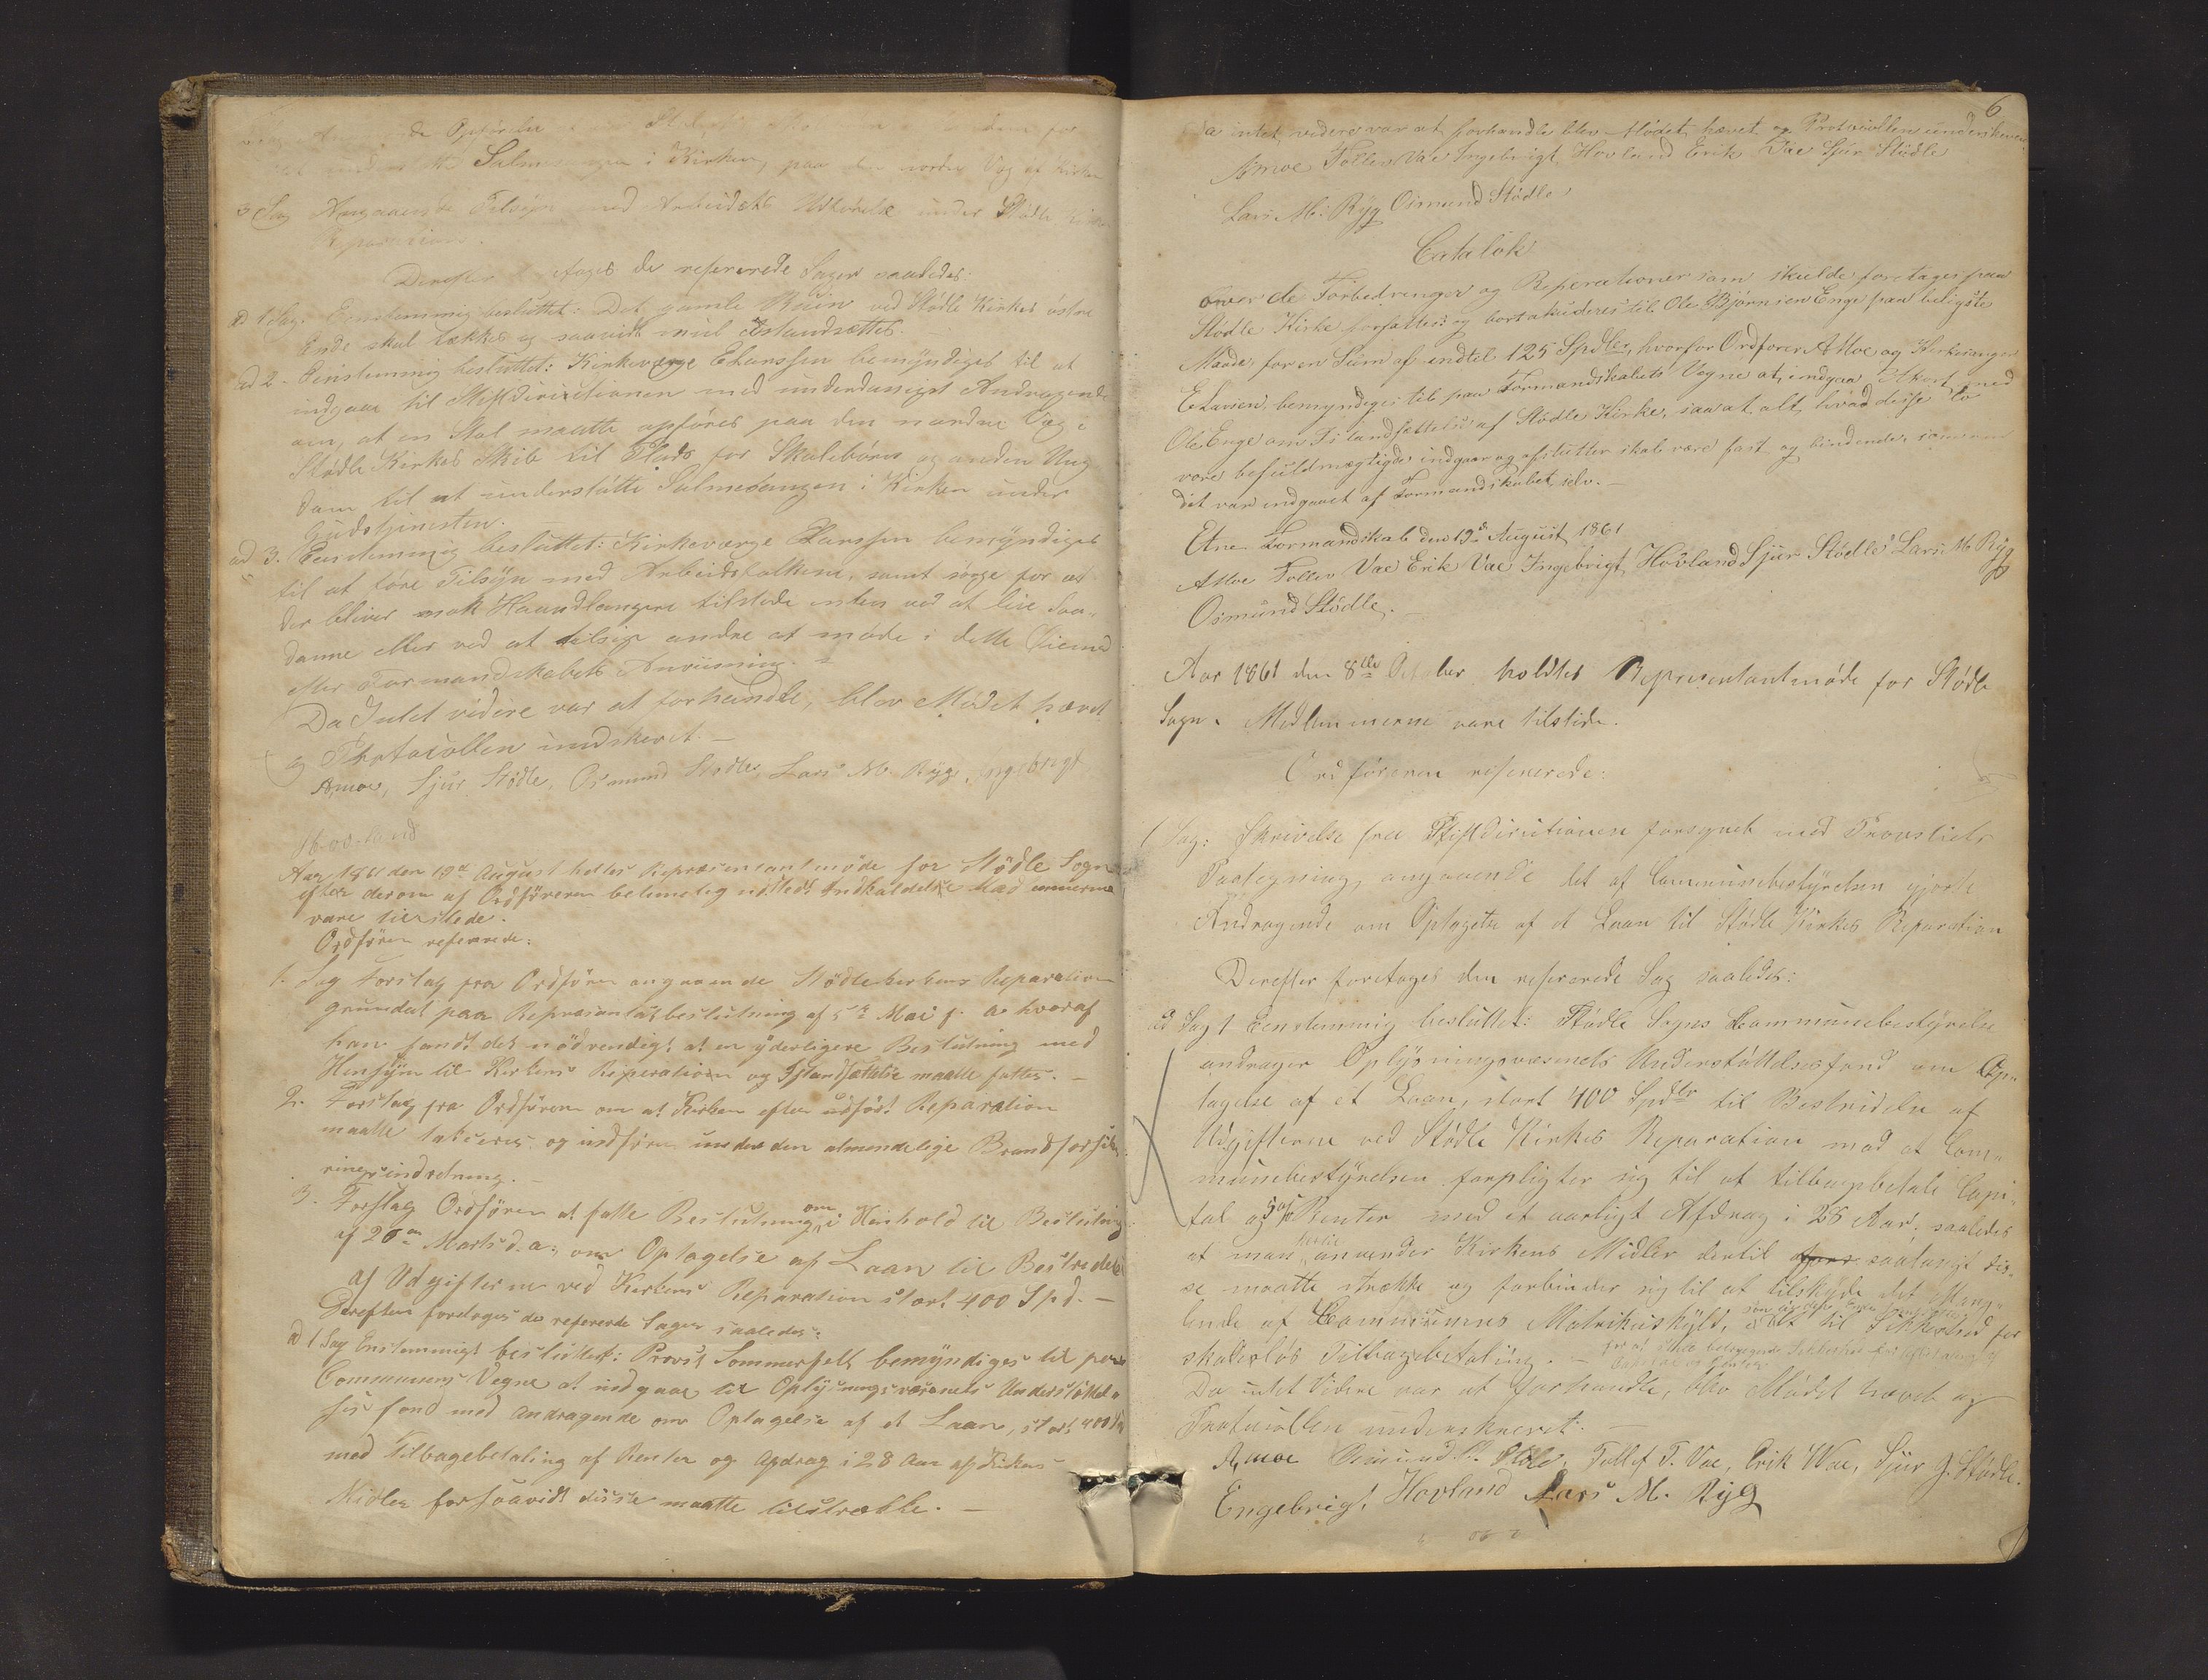 de Opførelse
Salmesangen i Kirken, paa den nordre Væg af Kirken
3 Sag Angaaende Tilsyn med Arbeidets Udførelse under Stødle Kirkes
Reparation.
Derefter foretoges de refererede Sager saaledes:
ad 1 Sag. Eenstemmig besluttet: Det gamle Ruin ved Stødle Kirkes østre
Ende skal tækkes og saavidt mul istandsættes.
ad 2. Eenstemmig besluttet: Kirkeværge ELarssen bemyndiges til at
indgaae til Stiftdirectionen med underdanigst Andragende
om, at en Stol maatte opføres paa den nordre Væg i
Stødle Kirkes Skib til Plads for Skolebørn og anden Ung-
dom til at understøtte Salmesangen i Kirken under
Gudstjenesten.
ad 3. Eenstemmig besluttet: Kirkeværge ELarssen bemyndiges
til at føre Tilsyn med Arbeidsfolkene, samt sørge for at
der bliver nok Haandlangere tilstede enten ved at leie saa-
danne eller ved at tilsige andre at møde i dette Øiemed
efter Formandskabets Anviisning.
Da Intet videre var at forhandle, blev Mødet hævet
og Protocollen undskrevet. —
Amoe, Sjur Stødle, Osmund Stødle, Lars M. Ryg, Ingebrigt
Hovland
Aar 1861 den 19de August holtes Repræsentantmøde for Stødle Sogn
efter derom af Ordføreren betimelig udstedt Indkaldelse Medlemmerne
vare tilstede.
Ordføren refererede:
1. Sag Forslag fra Ordføren angaaende Stødlekirkens Reparation
grundet paa Repræsentantbeslutning af 5te Mai f. a. hvoraf
han fandt det nødvendigt at en yderligere Beslutning med
Hensyn til Kirkens Reperation og Istandsættelse maatte fattes. —
2. Forslag fra Ordføreren om at Kirken efter udført Reparation
maatte takseres og indføres under den almindelige Brandforsik-
ringsindretning. —
3. Forslag Ordføren at fatte Beslutning om i Henhold til Beslutning
af 26de Marts d. a. om Optagelse af Laan til Bestridelse
af Udgifterne ved Kirkens Reparation stort 400 Spd. —
Derefter foretoges de refererede Sager saaledes:
ad 1 Sag Enstemmigt besluttet: Provst Sommerfelt bemyndiges til paa
Communens Vegne at indgaae til Oplysningsvæsenets Understøttel-
ses fond med andragende om Optagelse af et Laan, stort 400 Spd
med Tilbagebetaling af Renter og Afdrag i 28 Aar af Kirkens
Midler forsaavidt disse maatte tilstrække. —
6
Da intet videre var at forhandle blev Mødet hævet og Protocollen underskreven.
Amoe Tollev Vae Ingebrigt Hovland Erik Vae Sjur Stødle
Lars M. Ryg Osmund Stødle
Catalok
over de Forbedringer og Reperationer som skulde foretages paa
Stødle Kirke forfattes og bortakorderes til Ole Bjørnsen Enge paa beligste
Maade for en Sum af indtil 125 Spdlr, hvorfor Ordfører AMoe og Kirkeværger
ELarsen bemyndiges til paa Formandskabets Vegne at indgaa Akort med
Ole Enge om Istandsættelse af Stødle Kirke, saa at alt, hvad disse to
vore befuldmægtigde indgaar og afslutter skal være fast og bindende, som om
det var indgaaet af Formandskabet selv. —
Etne Formandskab den 19de August 1861
AMoe Tollev Vae Erik Vae Ingebrigt Hovland Sjur Stødle Lars M Ryg
Osmund Stødle. —
Aar 1861 den 8de October holdtes Representantmøde for Stødle
Sogn. Medlemmerne vare tilstede.
Ordføreren refererede:
1 Sag: Skrivelse fra Stiftdirectionen forsynet med Provstiets
Paategning, angaaende det af Communebestyrelsen gjorte
Andragende om Optagelse af et Laan til Stødle Kirkes Reparation
Derefter foretoges den refererede Sag saaledes:
ad Sag 1 Eenstemmig besluttet: Stødle Sogns Communebestyrelse
andrager Oplysningsvæsenets Understøttelsesfond om Op-
tagelse af et Laan, stort 400 Spdlr til Bestridelse af
Udgifterne ved Stødle Kirkes Reparation mod at Com-
munebestyrelsen forpligter sig til at tilbagebetale Capi-
tal og 5 % Renter med et aarligt Afdrag i 28 Aar, saaledes
at man anvender Kirkens Midler dertil saalangt dis-
se maatte strække og forbinder sig til at tilskyde det Mang-
lende af Communens Matrikulskyld, alt til Sikkerhed for
skadesløs Tilbagebetaling. —
Da intet Videre var at forhandle, blev Mødet hævet og
Protocollen underskrevet. —
Amoe Osmund Stødle, Tollef T. Vae, Erik Wae, Sjur J. Stødle.
Engebrigt Hovland Lars M. Ryg